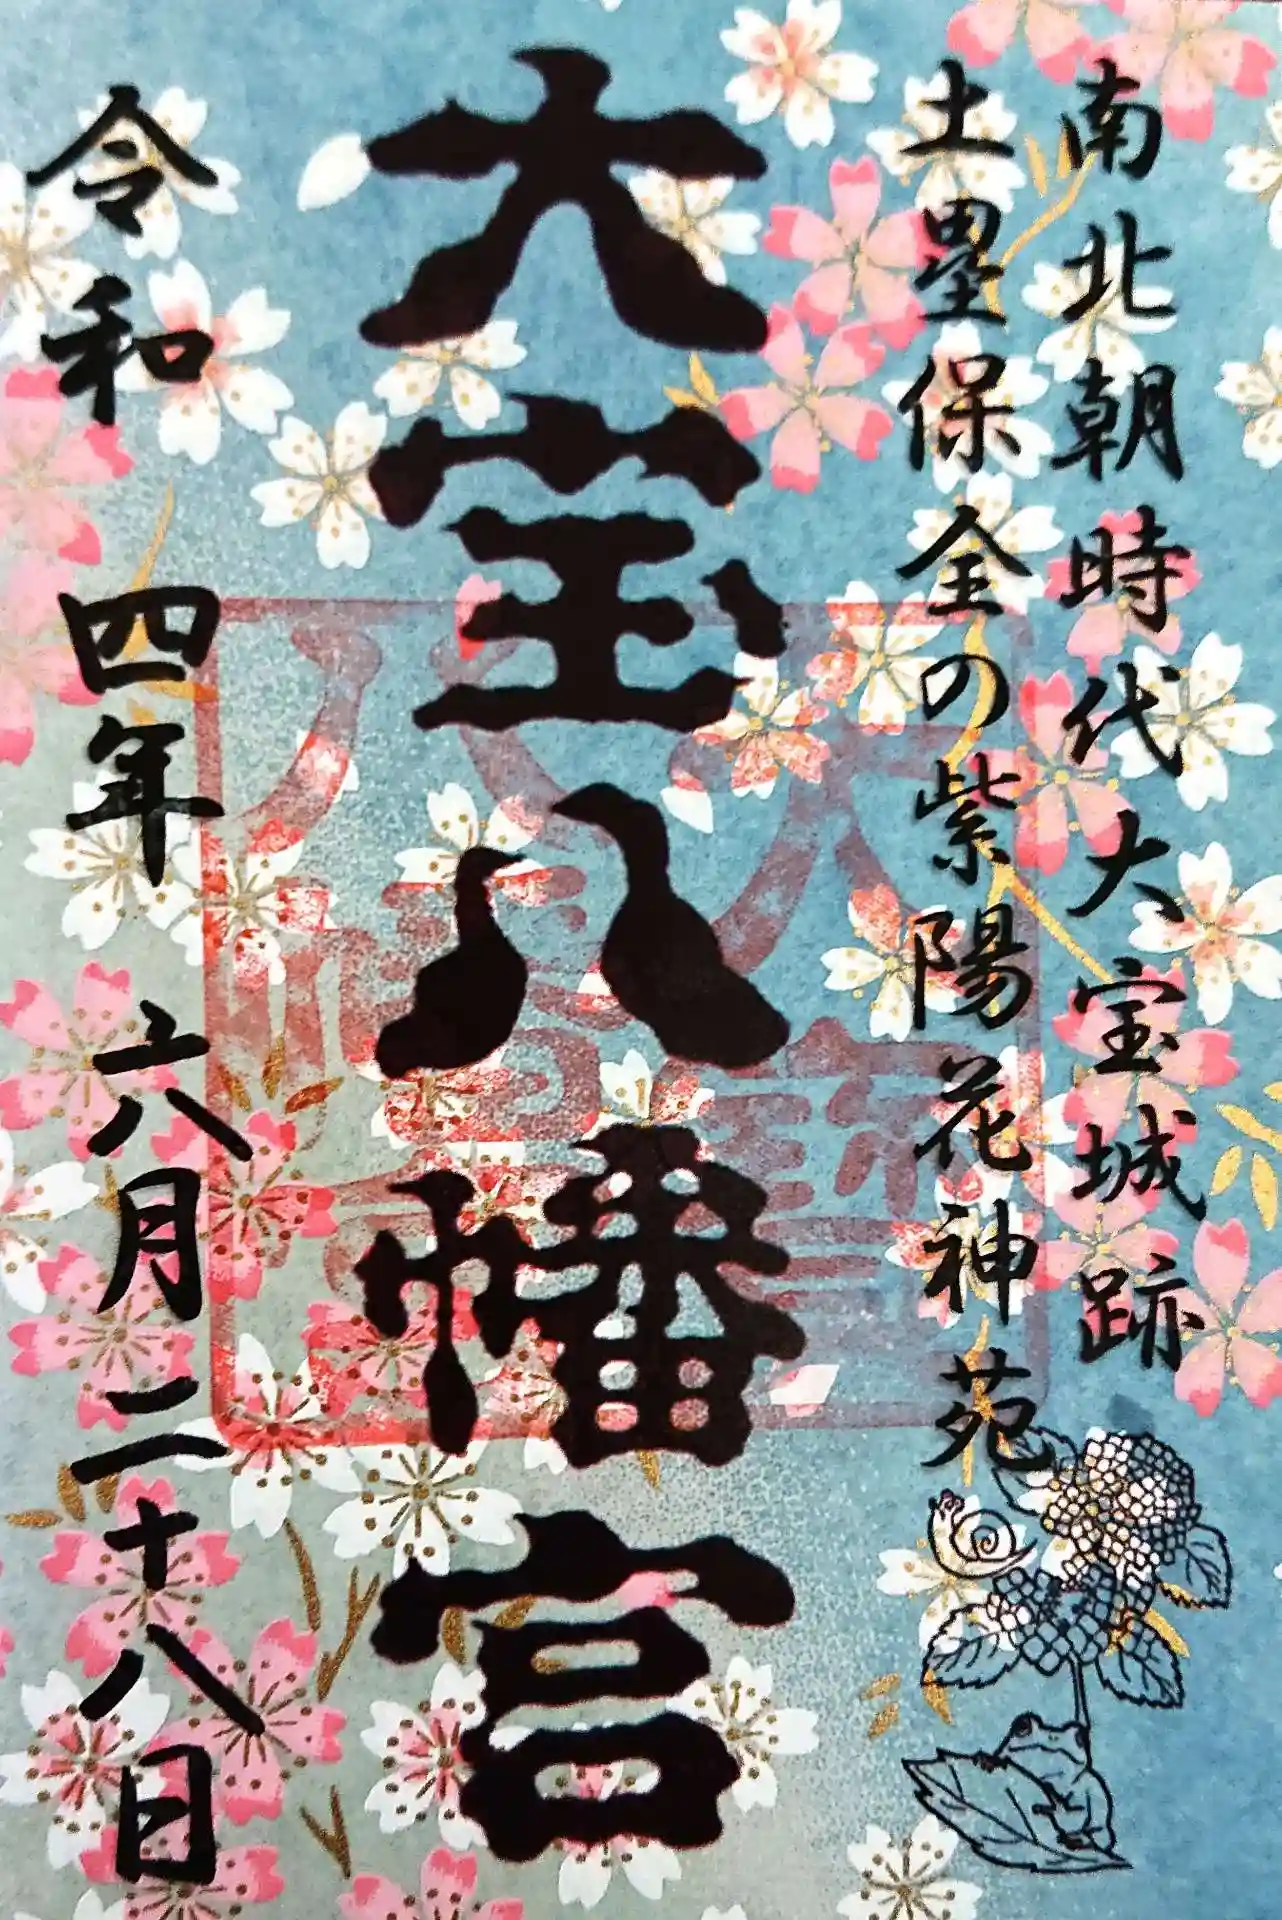 南北朝時代大宝城跡
土塁保全の紫陽花神苑
大宝八幡宮
令和四年六月二十八日